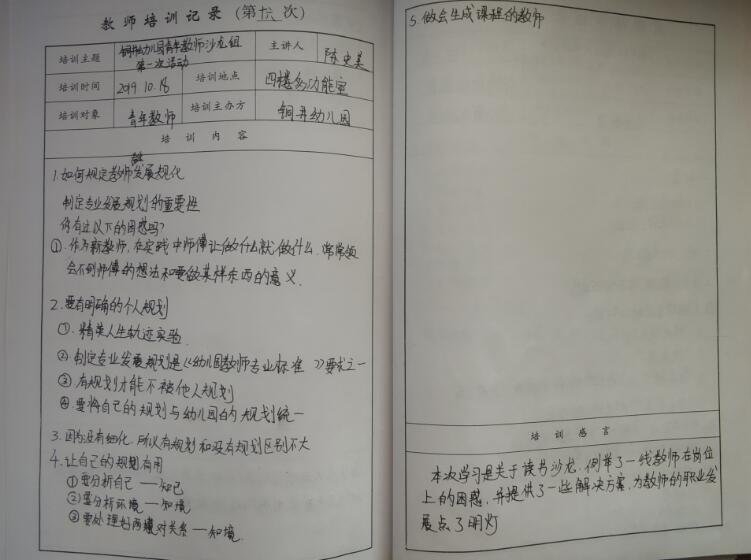 教师培训记录(第十六次)
培训主题 铜井幼儿园青年教师沙龙组第一次活动 主讲人 陈史美
培训时间 2019.10.18 培训地点 四楼多功能室
培训对象 青年教师 培训主办方 铜井幼儿园
培训内容
1.如何规定教师发展规化
制定专业发展规划的重要性
你有过以下的困惑吗?
①.作为新教师,在实践中师傅让做什么就做什么,常常领
会不到师傅的想法和要做某样东西的意义.
2.要有明确的个人规划
①.精英人生轨迹实验
②制定专业发展规划是《幼儿园教师专业标准》要求之一
③有规划才能不被他人规划
④要将自己的规划与幼儿园的规划统一
3.因为没有细化,所以有规划和没有规划区别不大
4.让自己的规划有用
①要分析自己——知己
②要分析环境——知境
③要处理好两种对关系——知境.
5.做会生成课程的教师
培训感言
本次学习是关于读书沙龙,例举了一线教师在岗位
上的困惑,并提供了一些解决方案,为教师的职业发
展点了明灯